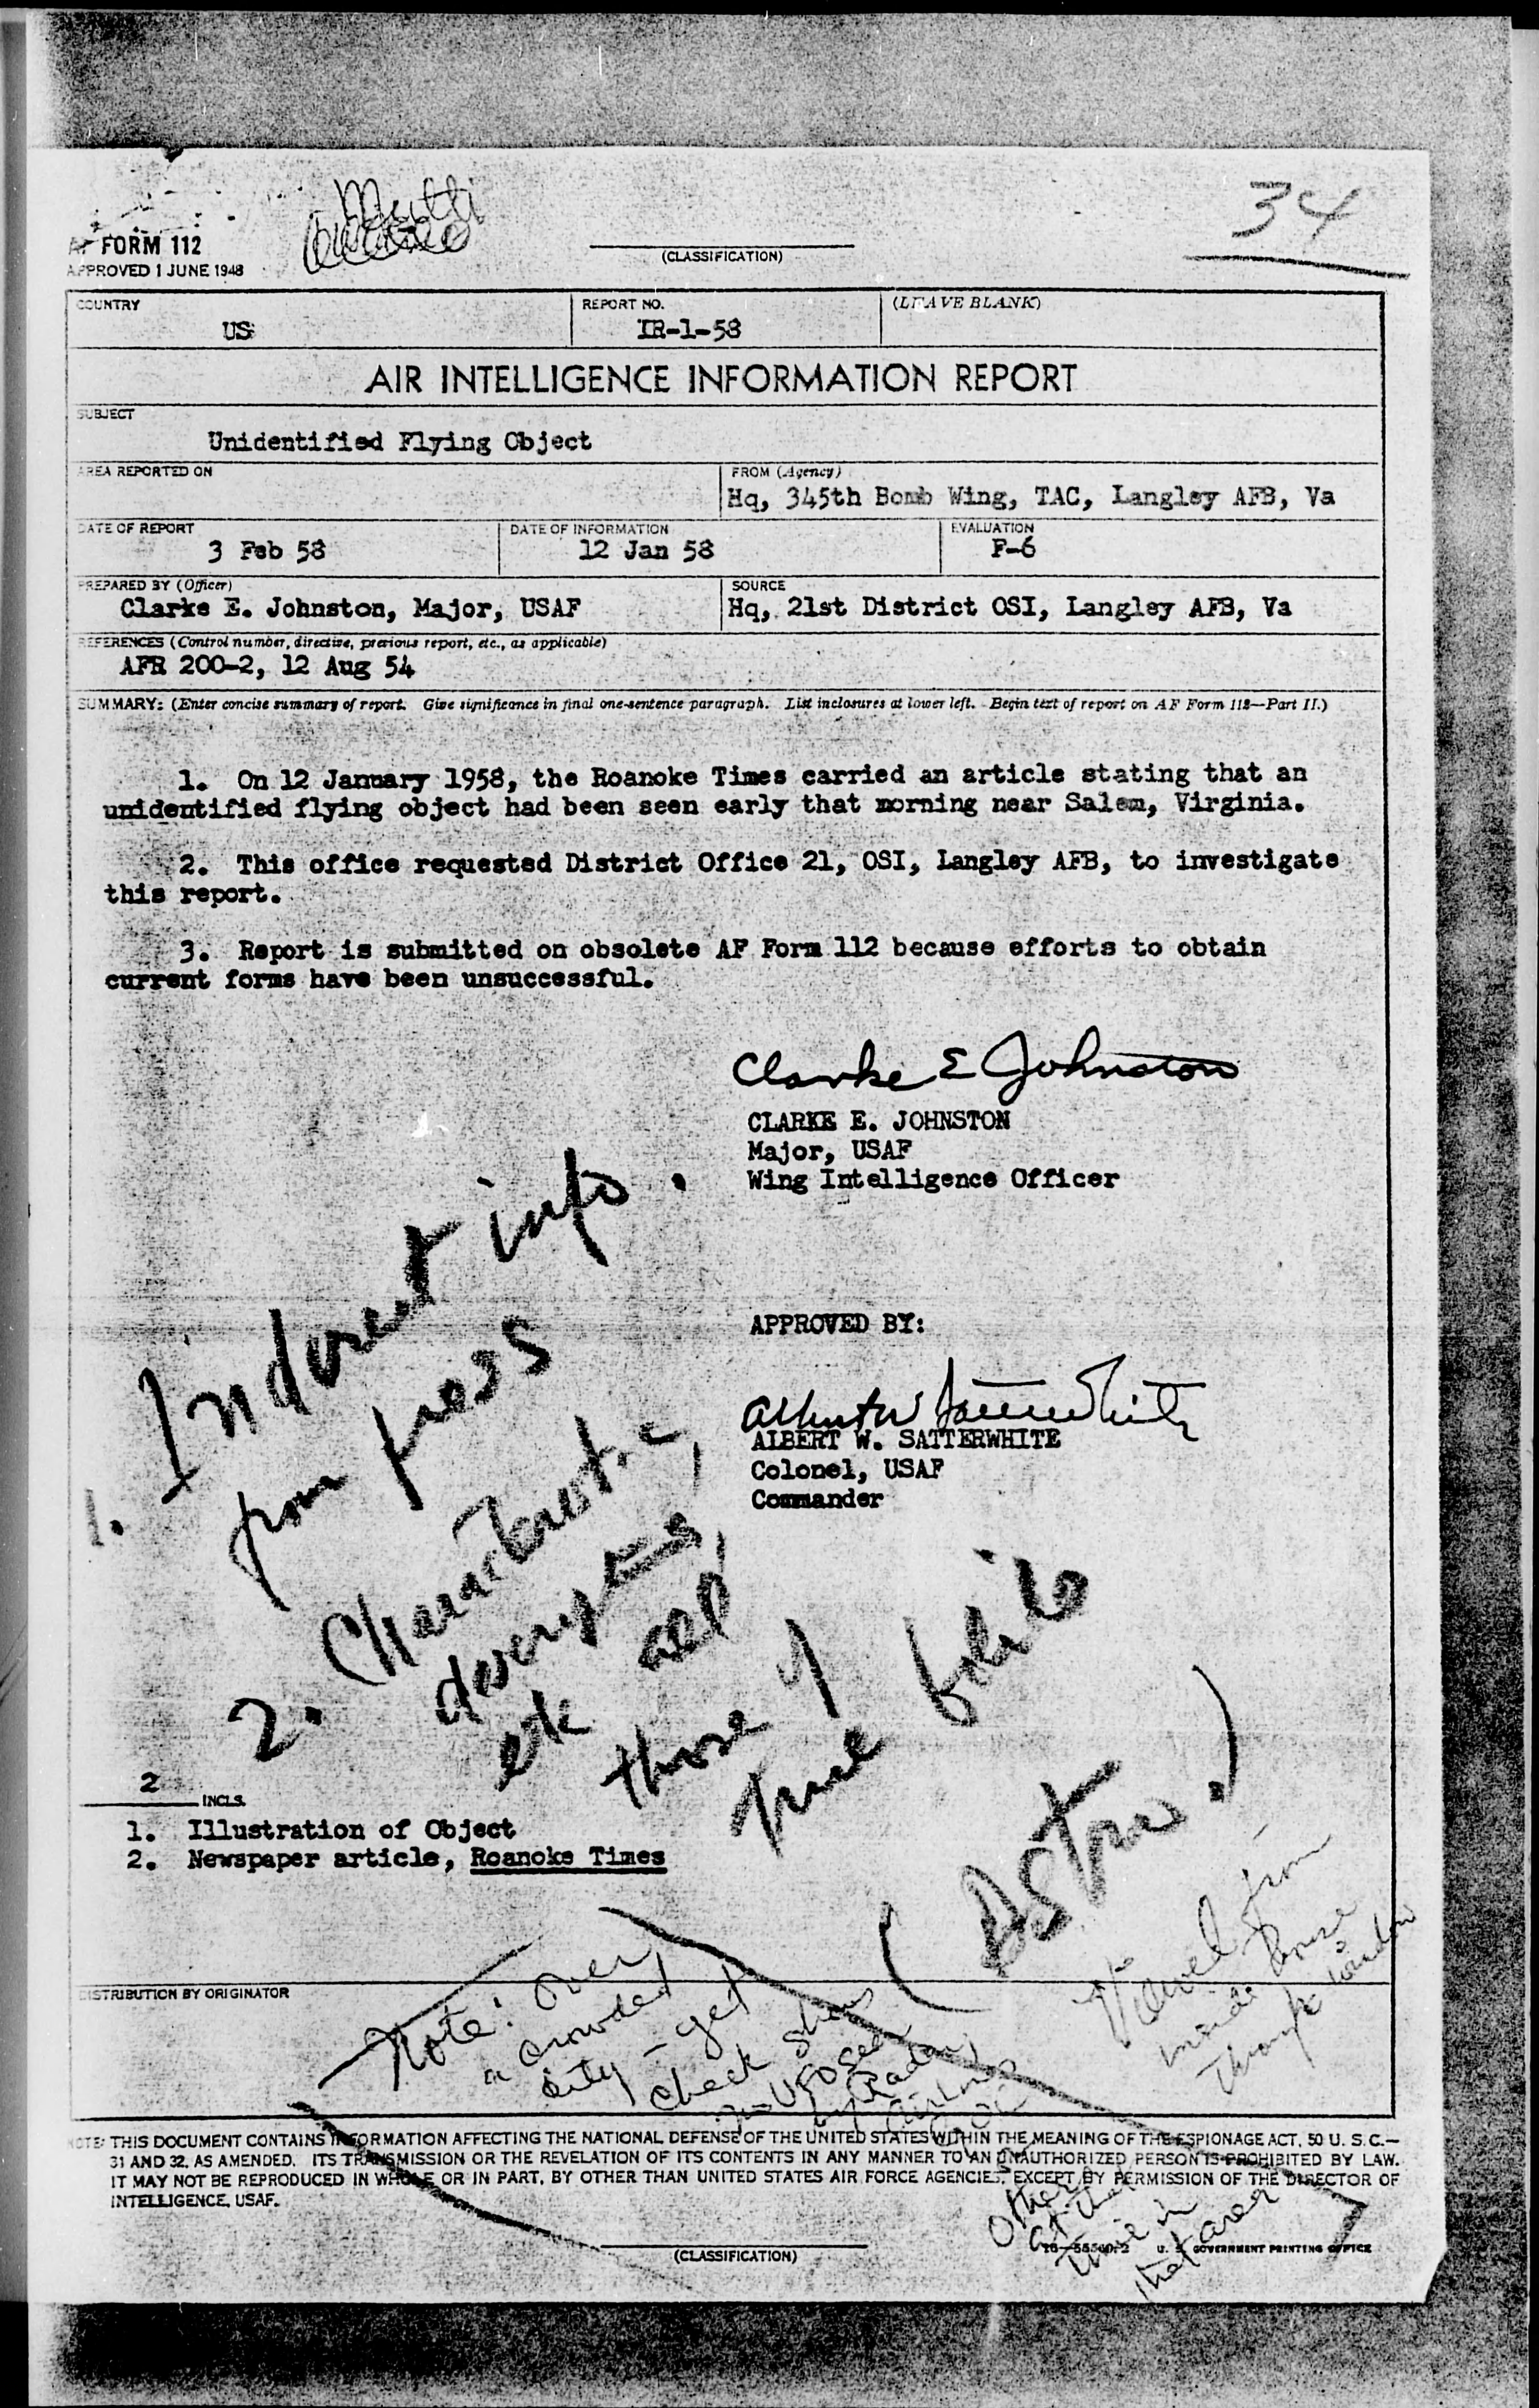 34
AF FORM 112
APPROVED 1 JUNE 1948
(CLASSIFICATION)
COUNTRY
US
REPORT NO.
IR-1-58
(LEAVE BLANK)
AIR INTELLIGENCE INFORMATION REPORT
SUBJECT
Unidentified Flying Object
AREA REPORTED ON
FROM (Agency)
Hq, 345th Bomb Wing, TAC, Langley AFB, Va
DATE OF REPORT
3 Feb 58
DATE OF INFORMATION
12 Jan 58
EVALUATION
F-6
PREPARED BY (Officer)
Clarke E. Johnston, Major, USAF
SOURCE
Hq, 21st District OSI, Langley AFB, Va
REFERENCES (Control number, directive, previous report, etc., as applicable)
AFR 200-2, 12 Aug 54
SUMMARY: (Enter concise summary of report. Give significance in final one-sentence paragraph. List inclosures at lower left. Begin text of report on AF Form 112—Part II.)
1. On 12 January 1958, the Roanoke Times carried an article stating that an
unidentified flying object had been seen early that morning near Salem, Virginia.
2. This office requested District Office 21, OSI, Langley AFB, to investigate
this report.
3. Report is submitted on obsolete AF Form 112 because efforts to obtain
current forms have been unsuccessful.
Clarke E Johnston
CLARKE E. JOHNSTON
Major, USAF
Wing Intelligence Officer
APPROVED BY:
Albert W Satterwhite
ALBERT W. SATTERWHITE
Colonel, USAF
Commander
1. info.
from press
2. Characteristic,
all
those of
true
(Astro.)
2 INCLS.
1. Illustration of Object
2. Newspaper article, Roanoke Times
Viewed from
inside house
through window
DISTRIBUTION BY ORIGINATOR
Note: Over
a crowded
city - get
check shows
no UFO seen
by Radar,
others
at that
time in
that area
NOTE: THIS DOCUMENT CONTAINS INFORMATION AFFECTING THE NATIONAL DEFENSE OF THE UNITED STATES WITHIN THE MEANING OF THE ESPIONAGE ACT, 50 U. S. C.—
31 AND 32, AS AMENDED. ITS TRANSMISSION OR THE REVELATION OF ITS CONTENTS IN ANY MANNER TO AN UNAUTHORIZED PERSON IS PROHIBITED BY LAW.
IT MAY NOT BE REPRODUCED IN WHOLE OR IN PART, BY OTHER THAN UNITED STATES AIR FORCE AGENCIES, EXCEPT BY PERMISSION OF THE DIRECTOR OF
INTELLIGENCE, USAF.
(CLASSIFICATION)
U. S. GOVERNMENT PRINTING OFFICE